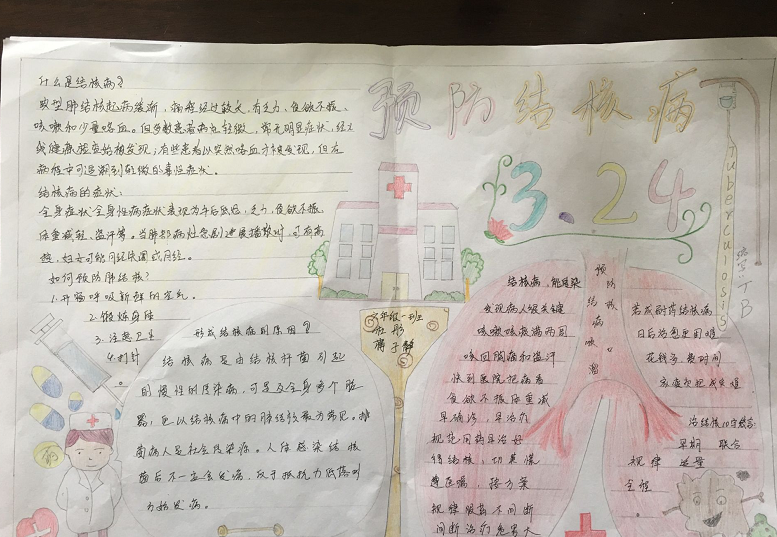 什么是结核病?
典型肺结核起病缓渐，病程经过较长，有乏力、食欲不振、
咳嗽和少量咯血。但多数患者病灶轻微，常无明显症状，经X
线健康检查始被发现；有些患者以突然咯血才被发现，但在
病程中可追溯到轻微的毒性症状。
结核病的症状：
全身症状全身性病症状表现为午后低热，乏力，食欲不振
体重减轻，盗汗等。当肺部病灶急剧进展播散时，可有高
热，妇女可能月经失调或闭经。
如何预防肺结核?
1.开窗呼吸新鲜的空气
2.锻炼身体
3.注意卫生
4.打针
形成结核病的原因?
结核病是由结核杆菌引起
的慢性的传染病，可是及全身多个脏
器，但以结核病中的肺结核最为常见。排
菌病人是社会传染源。人体感染结核
菌后不一定会发病，仅于抵抗力低落时
方始发病。
预防结核病
3.24
Tuberculosis
缩写:TB
班
彤
子
预防结核病
结核病，能传染
发现病人很关键
咳嗽咳痰满两周
咳回胸痛和盗汗
快到医院把病看
食欲不振体重减
早确诊，早治疗
规范用药早治好
得结核，切莫慌
遵医嘱，按方案
规律服药不间断
间断治疗危害大
若成耐药结核病
日后治愈更困难
花钱多费时间
治结核10字箴言:
早期 联合
规律 适量
全程